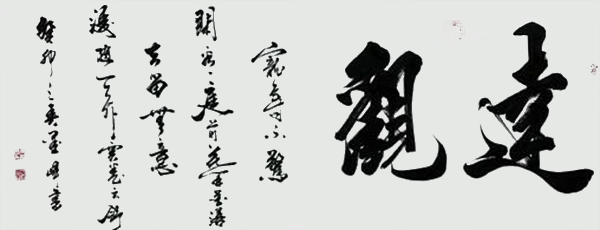 達觀
寵辱不驚
閑看庭前花開花落
去留無意
漫隨天外雲卷雲舒
癸卯之書